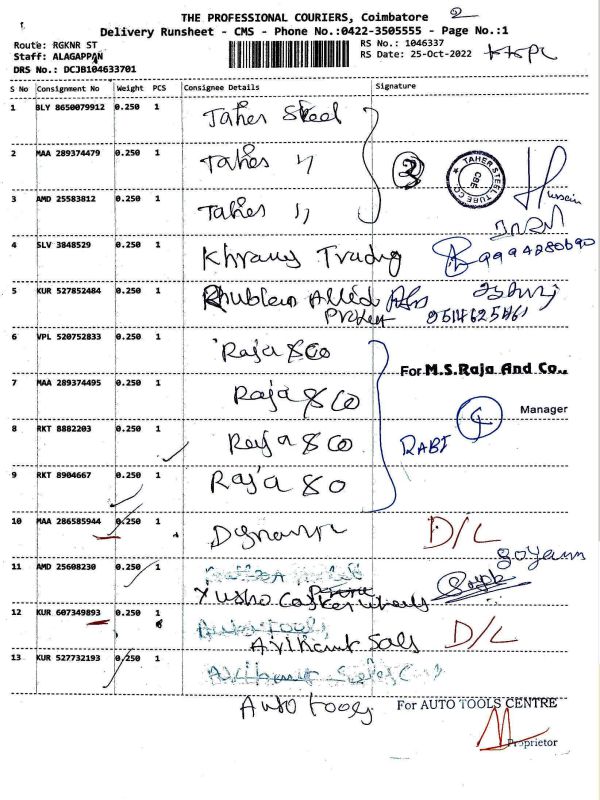 THE PROFESSIONAL COURIERS, Coimbatore 2
Delivery Runsheet - CMS - Phone No.:0422-3505555 - Page No.:1
Route: RGKNR ST RS No.: 1046337
Staff: ALAGAPPAN RS Date: 25-Oct-2022
DRS No.: DCJB104633701
S No Consignment No Weight PCS Consignee Details Signature
1 BLY 8650079912 0.250 1 Taher Steel
2 MAA 289374479 0.250 1 Taher 11 3 TAHER STEEL TUBE CO. CBE
3 AMD 25583812 0.250 1 Taher 11 Hussain
4 SLV 3848529 0.250 1 Khrang Trading 9994280690
5 KUR 527852484 0.250 1 Allied 9514625461
6 VPL 520752833 0.250 1 Raja & Co
For M.S.Raja And Co.,
7 MAA 289374495 0.250 1 Raja & Co
Manager
8 RKT 8882203 0.250 1 Raja & Co RABI
9 RKT 8904667 0.250 1 Raja & Co
10 MAA 286585944 0.250 1 D/L
11 AMD 25608230 0.250 1
12 KUR 607349893 0.250 1 Auto Tools
Arihant Sales D/L
13 KUR 527732193 0.250 1
Auto tools For AUTO TOOLS CENTRE
Proprietor